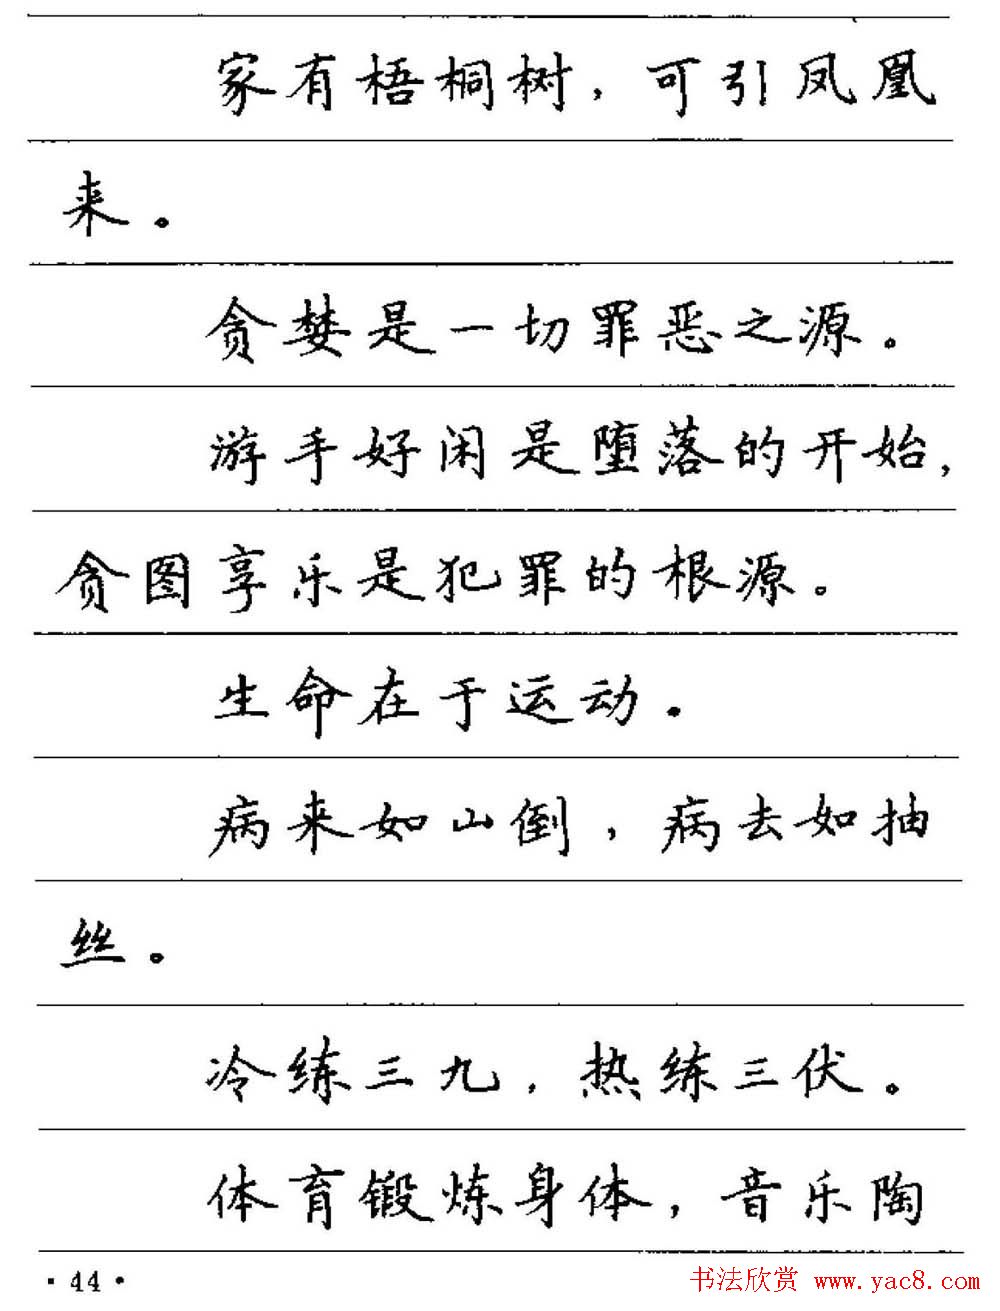 家有梧桐树，可引凤凰
来。
贪婪是一切罪恶之源。
游手好闲是堕落的开始，
贪图享乐是犯罪的根源。
生命在于运动。
病来如山倒，病去如抽
丝。
冷练三九，热练三伏。
体育锻炼身体，音乐陶
·44·
书法欣赏 www.yac8.com